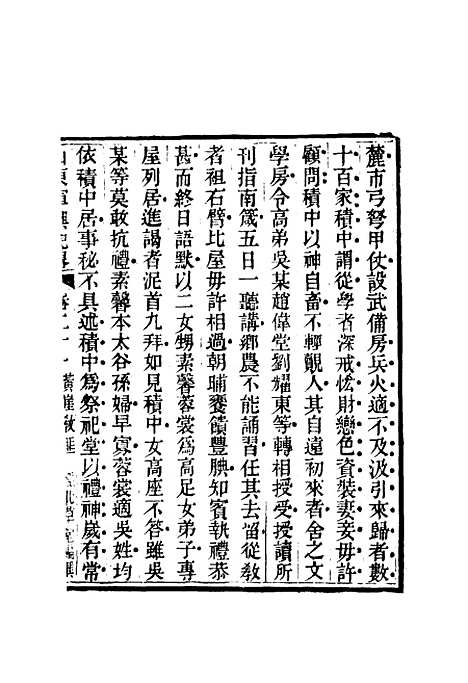 麓市弓弩甲仗設武備房兵火適不及汲引來歸者數
十百家積中謂從學者深戒恡財戀色資裝妻妾毋許
顧問積中以神自畜不輕覿人其自遠初來者舍之文
學房令高弟吳某趙偉堂劉耀東等轉相授受授讀所
刊指南箴五日一聽講鄉農不能誦習任其去留從教
者袒右臂比屋毋許相過朝晡饔饋豐腆知賓執禮恭
甚而終日語默以二女甥素馨蓉裳為高足女弟子專
屋列居進謁者泥首九拜如見積中女高座不答雖吳
某等莫敢抗禮素馨本太谷孫婦早寡蓉裳適吳姓均
依積中居事秘不具述積中為祭祀堂以禮神歲有常
山東軍興紀略 卷二十一 黃崖教匪